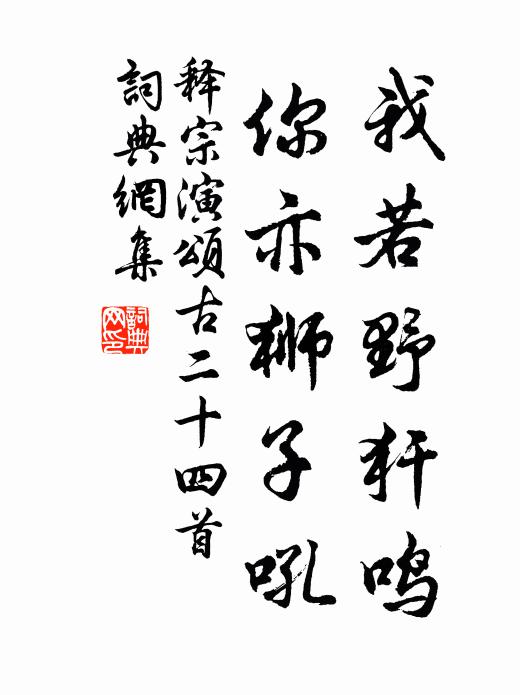 我若野犴鸣
你亦狮子吼
释宗演颂古二十四首
詞典網集
詞典网印